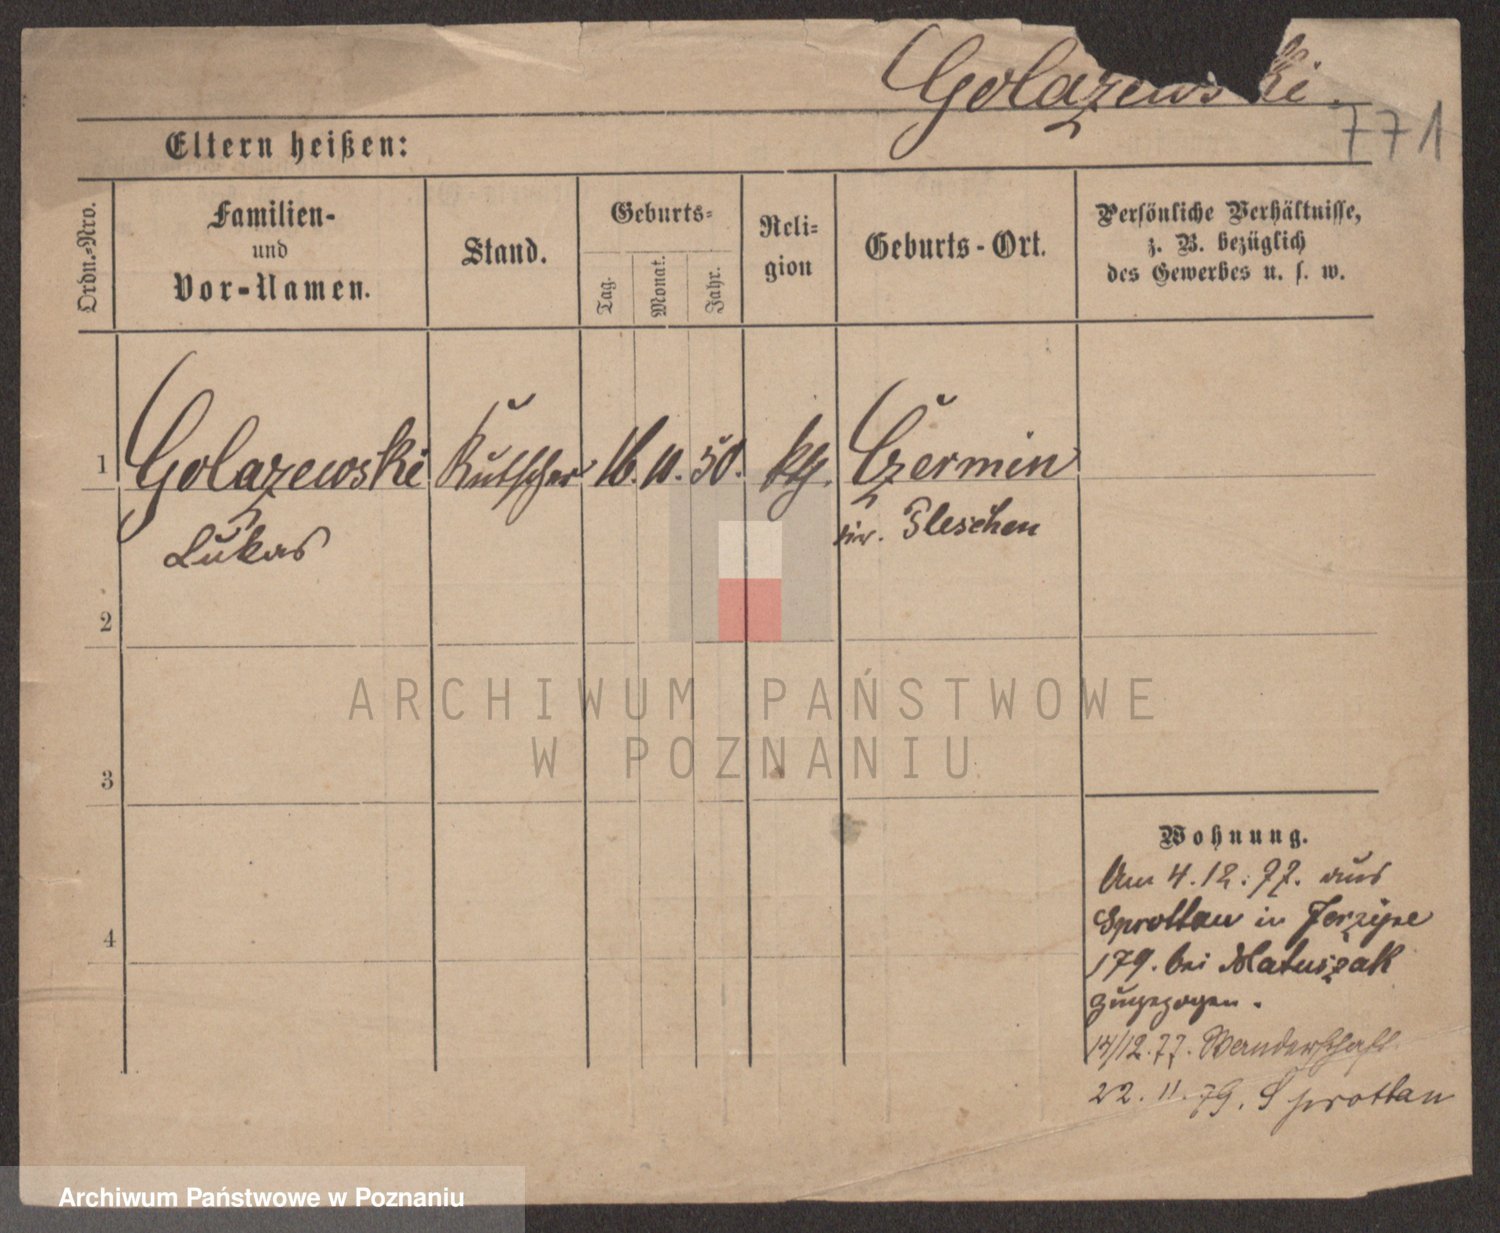 Golazewski.
771
Eltern heißen:
Ordn.-Nro.
Familien-
und
Vor-Namen.
Stand.
Geburts-
Tag.
Monat.
Jahr.
Reli-
gion
Geburts-Ort.
Persönliche Verhältnisse,
z. B. bezüglich
des Gewerbes u. s. w.
1 Golazewski Kutscher 16. 11. 50. kth. Czermin
Lukas
Kr. Pleschen
2
3
4
Wohnung.
Am 4.12.77. aus
Sprottau in Jerzyce
179. bei Matuszak
zugezogen.
12.77. Wanderschaft
22.11.79. Sprottau
ARCHIWUM PAŃSTWOWE
W POZNANIU
Archiwum Państwowe w Poznaniu